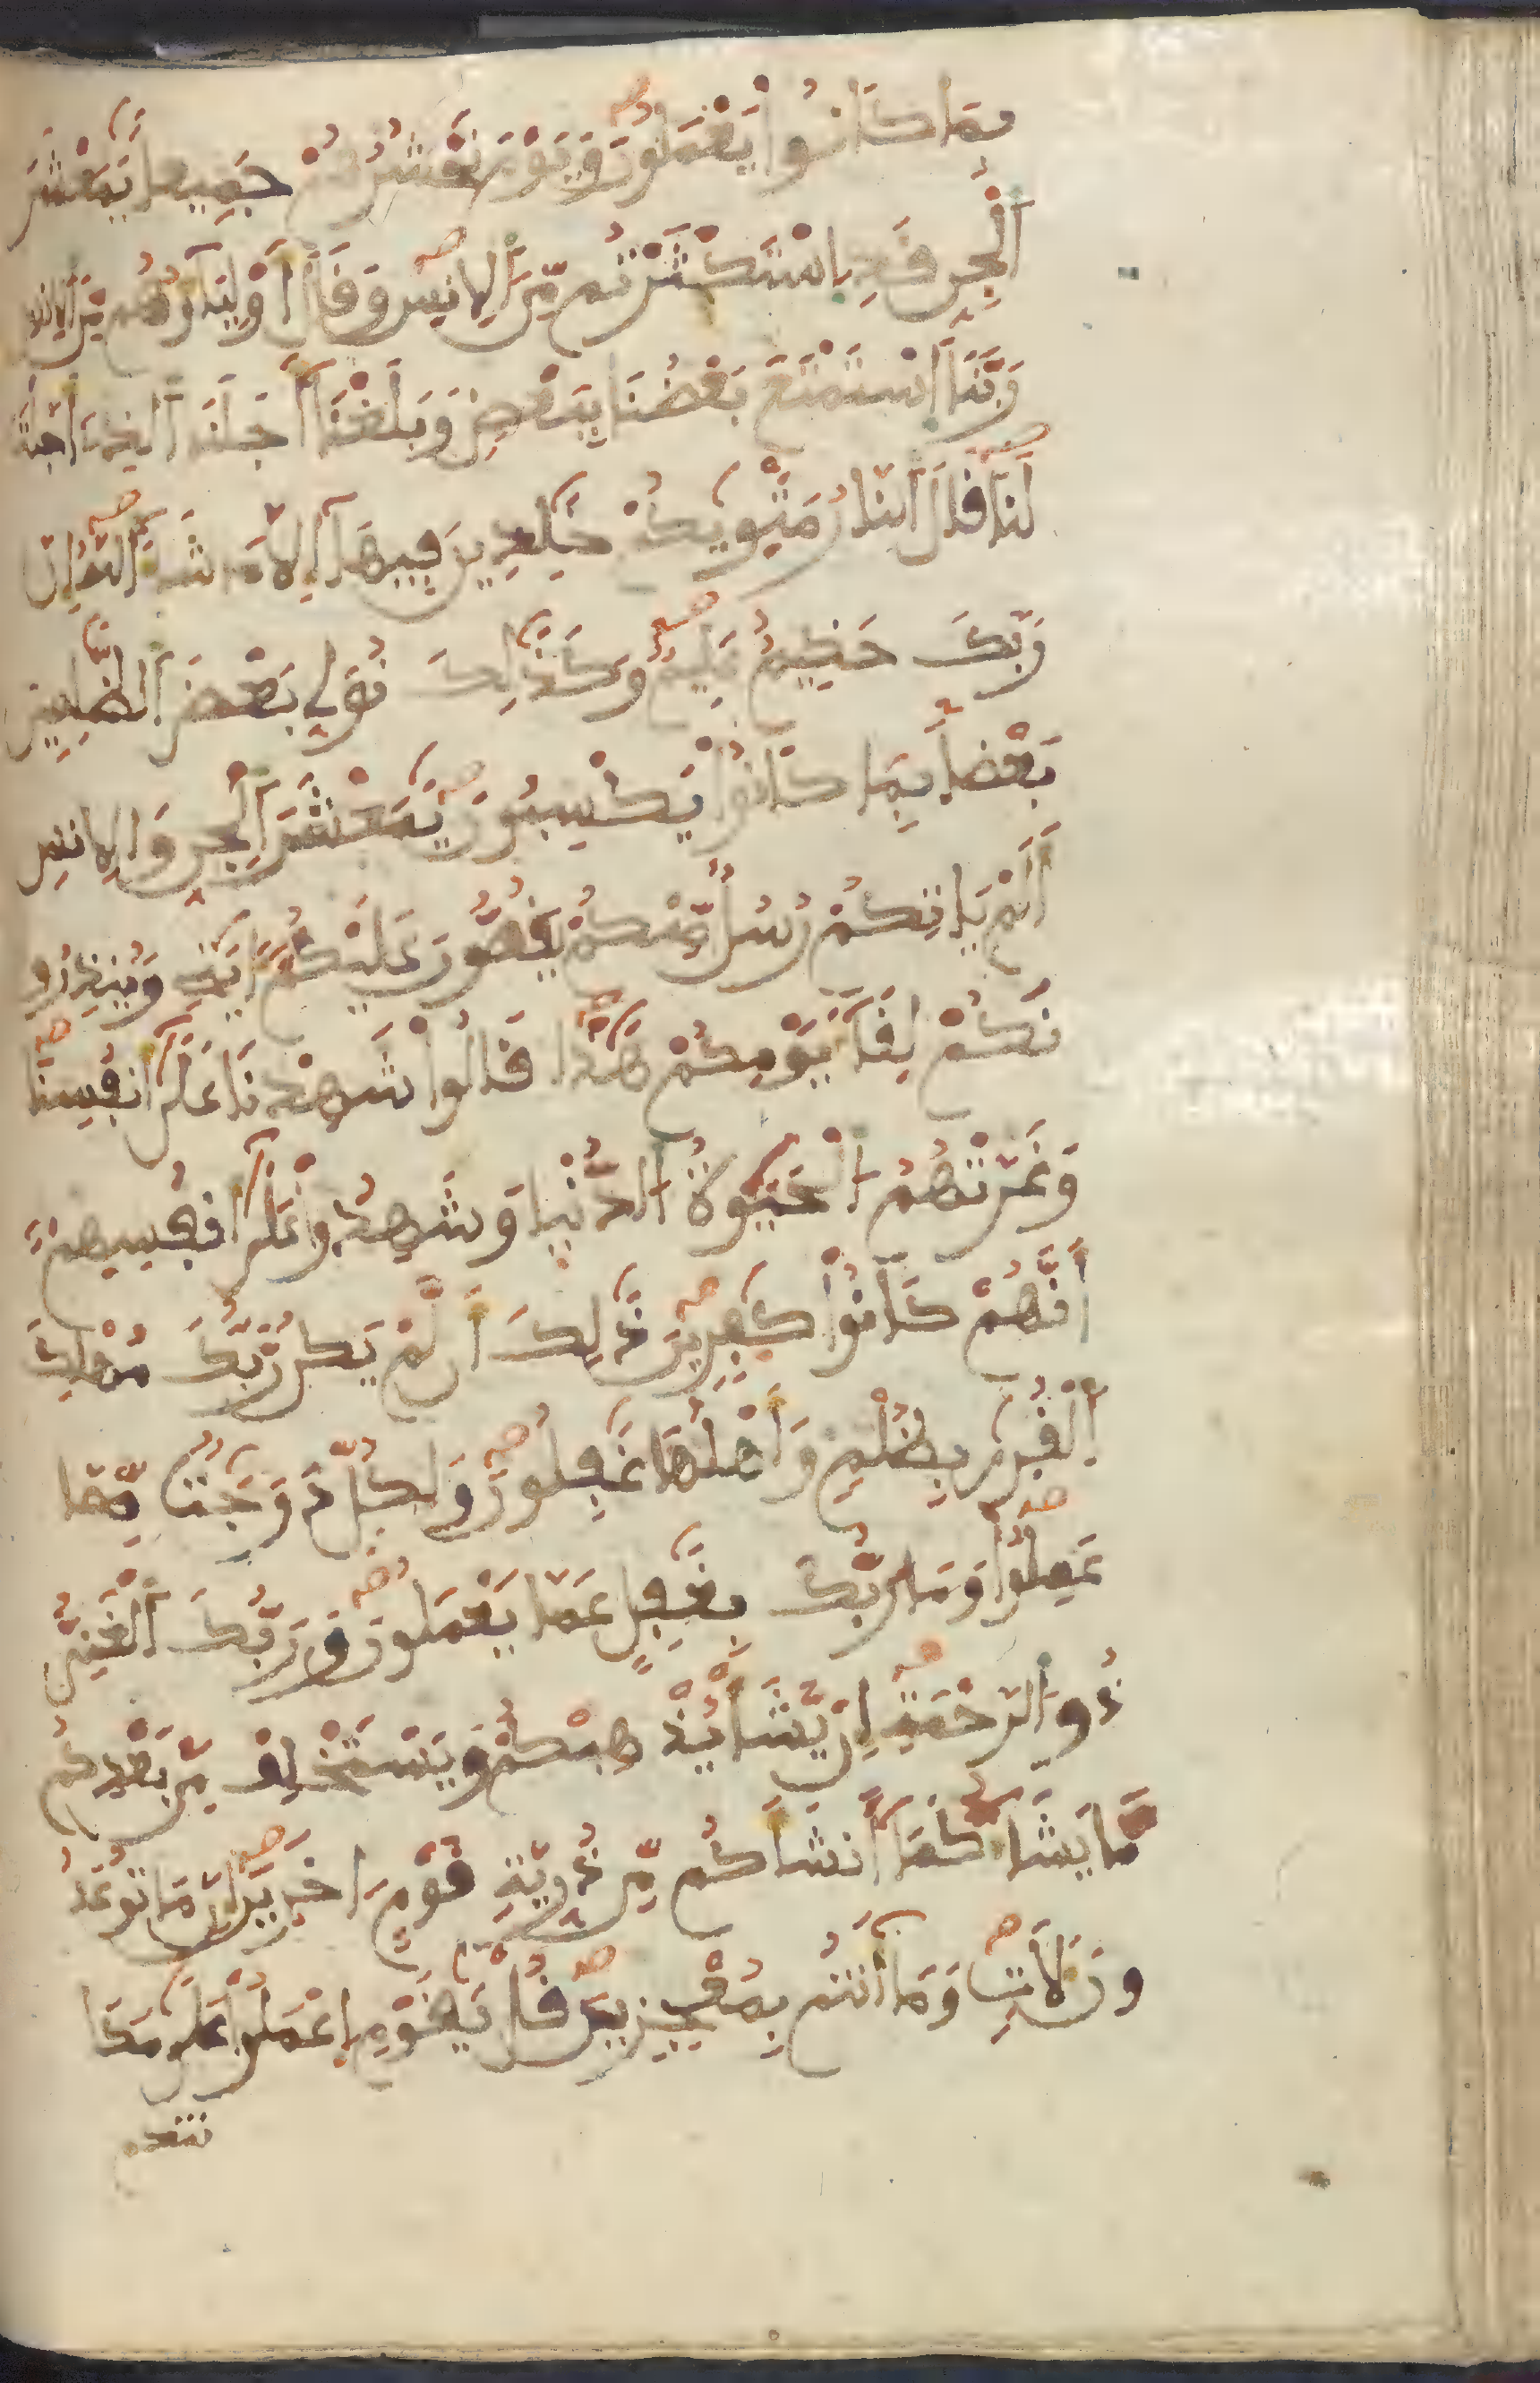 بِمَا كَانُواْ يَعْمَلُونَ وَيَوْمَ نَحْشُرُهُمْ جَمِيعا يَٰمَعْشَرَ
اَلْجِنِّ قَدِ اِسْتَكْثَرْتُم مِّنَ اَلِانسِ وَقَالَ أَوْلِيَآؤُهُم مِّنَ اَلِانسِ
رَبَّنَا اَسْتَمْتَعَ بَعْضُنَا بِبَعْضٖ وَبَلَغْنَآ أَجَلَنَا اَلذِے أَجَّلْتَ
لَنَا قَالَ اَلنَّارُ مَثْوٜيٰكُمْ خَٰلِدِينَ فِيهَآ إِلَّا مَا شَآءَ اَللَّهُ إِنَّ
رَبَّكَ حَكِيمٌ عَلِيمٌ وَكَذَٰلِكَ نُوَلِّے بَعْضَ اَلظَّٰلِمِينَ
بَعْضاَۢ بِمَا كَانُواْ يَكْسِبُونَ يَٰمَعْشَرَ اَلْجِنِّ وَالِانسِ
أَلَمْ يَاتِكُمْ رُسُلٌ مِّنكُمْ يَقُصُّونَ عَلَيْكُمُۥٓ ءَايَٰتِے وَيُنذِرُو
نَكُمْ لِقَآءَ يَوْمِكُمْ هَٰذَا قَالُواْ شَهِدْنَا عَلَىٰٓ أَنفُسِنَا
وَغَرَّتْهُمُ اَلْحَيَوٰةُ اَلدُّنْيَا وَشَهِدُواْ عَلَىٰٓ أَنفُسِهِمُۥٓ
أَنَّهُمْ كَانُواْ كَٰفِرِينَ ذَٰلِكَ أَن لَّمْ يَكُن رَّبُّكَ مُهْلِكَ
اَلْقُرَىٰ بِظُلْمٖ وَأَهْلُهَا غَٰفِلُونَ وَلِكُلّٖ دَرَجَٰتٌ مِّمَّا
عَمِلُواْ وَمَا رَبُّكَ بِغَٰفِلٍ عَمَّا يَعْمَلُونَ وَرَبُّكَ اَلْغَنِيُّ
ذُو اَلرَّحْمَةِ إِنْ يَّشَأْ يُذْهِبْكُمْ وَيَسْتَخْلِفْ مِنۢ بَعْدِكُم
مَّا يَشَآءُ كَمَآ أَنشَأَكُم مِّن ذُرِّيَّةِ قَوْمٍ اٰخَرِينَ إِنَّ مَا تُوعَدُ
ونَ لَأٓتٖ وَمَآ أَنتُم بِمُعْجِزِينَ قُلْ يَٰقَوْمِ اِعْمَلُواْ عَلَىٰ مَكَا
نتكم